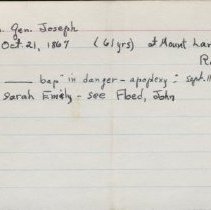 . Gen. Joseph
Oct. 21, 1867 (61 yrs) at Mount
R
bap" in danger - apoplexy : Sept. 11
Sarah Emily - see Floed, John